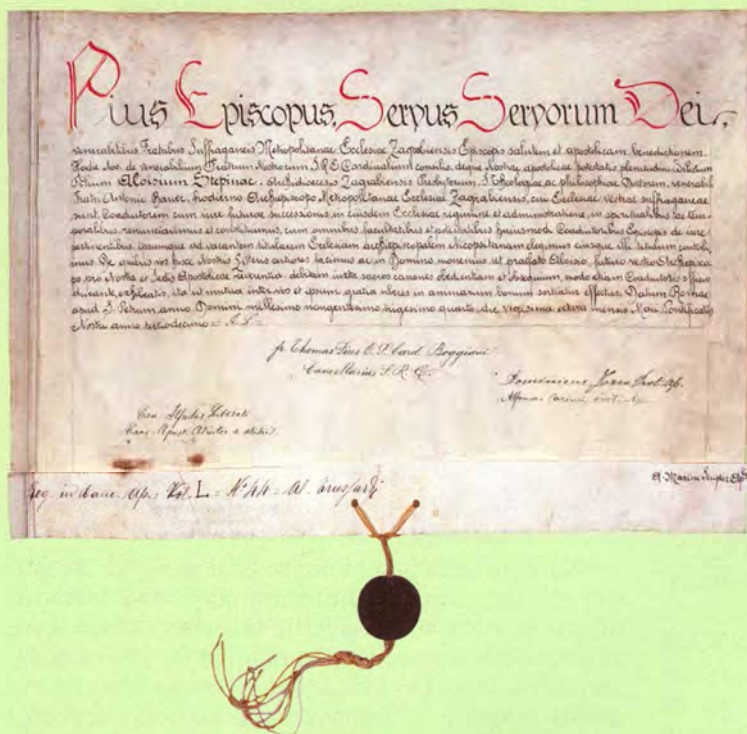 Pius Episcopus, Servus Servorum Dei,
venerabilibus Fratribus Suffraganeis Metropolitanae Ecclesiae Zagrabiensis Episcopis salutem et apostolicam benedictionem.
Hodie Nos, de venerabilium Fratrum Nostrorum S.R.E. Cardinalium consilio, deque Nostrae apostolicae potestatis plenitudine dilectum
Filium Aloisium Stepinac, Archidioecesis Zagrabiensis Presbyterum, S. Theologiae ac philosophiae Doctorem, venerabili
Fratri Antonio Bauer, hodierno Archiepiscopo Metropolitanae Ecclesiae Zagrabiensis, cui Ecclesiae vestrae suffraganeae
sunt, Coadiutorem cum iure futurae successionis in eiusdem Ecclesiae regimine et administratione, in spiritualibus ac tem
poralibus, renunciavimus et constituimus, cum omnibus facultatibus et potestatibus huiusmodi Coadiutoribus Episcopis de iure
pertinentibus, ipsumque ad vacantem titularem Ecclesiam archiepiscopalem Nicopsitanam elegimus eiusque illi titulum contuli
mus. De quibus vos hisce Nostris Literis certiores facimus ac in Domino monemus ut praefato Aloisio, futuro vestro Archiepisco
po pro Nostra et Sedis Apostolicae reverentia debitam iuxta sacros canones obedientiam et obsequium, modo etiam Coadiutoris officio
durante, exhibeatis, ita ut mutua inter vos et ipsum gratia uberes in animarum bonum sortiatur effectus. Datum Romae
apud S. Petrum anno Domini millesimo nongentesimo trigesimo quarto, die vigesima octava mensis Maii, Pontificatus
Nostri anno tertiodecimo.
fr. Thomas Pius O. P. Card. Boggiani
Cancellarius S. R. E.
Dominicus Prot. Ap.
Alfonsus Carinci Prot. Ap.
Can. Alfridus Liberati
Canc. Apost. Adiutor a studiis
Reg. in Canc. Ap. Vol. L = N° 44 = Al.